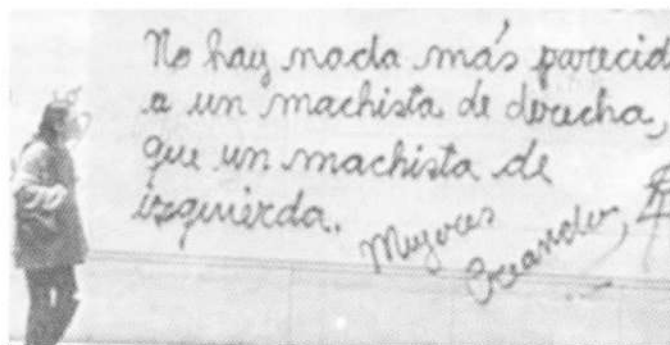 No hay nada más parecid
a un machista de derecha,
que un machista de
izquierda.
Mujeres
Creando,